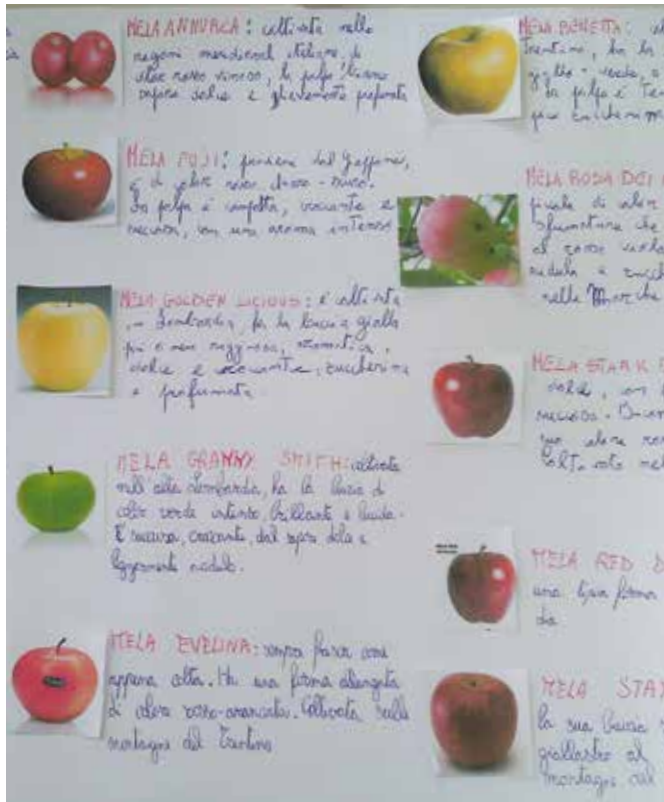 MELA ANNURCA: coltivata nelle
regioni meridionali italiane, di
color rosso vinoso, la polpa bianca
sapore dolce e gravemente profumata
MELA FUJI: proviene dal Giappone,
è di color rosso chiaro-scuro.
La polpa è compatta, croccante e
succosa, con una aroma intenso
MELA GOLDEN LICIOUS: è coltivata
in Lombardia, ha la buccia gialla
più o meno rugginosa, aromatica,
dolce e croccante, zuccherina
e profumata.
MELA GRANNY SMITH: coltivata
nell'alta Lombardia, ha la buccia di
color verde intenso, brillante e lucida.
È succosa, croccante, dal sapore dolce e
leggermente acidulo.
MELA EVELINA: sempre fresca come
appena colta. Ha una forma allungata
di colore rosso-aranciata. Coltivata sulle
montagne del Trentino
MELA RENETTA:
Trentino, ha la
giallo-verde, a
la polpa è
MELA ROSA DEI
piccola di color
sfumature che
al rosso
acidula e
nelle Marche
MELA STARK
dolce, con
succosa.
suo colore
MELA RED D
una tipica forma
MELA STAY
la sua buccia
giallastro al
montagne del